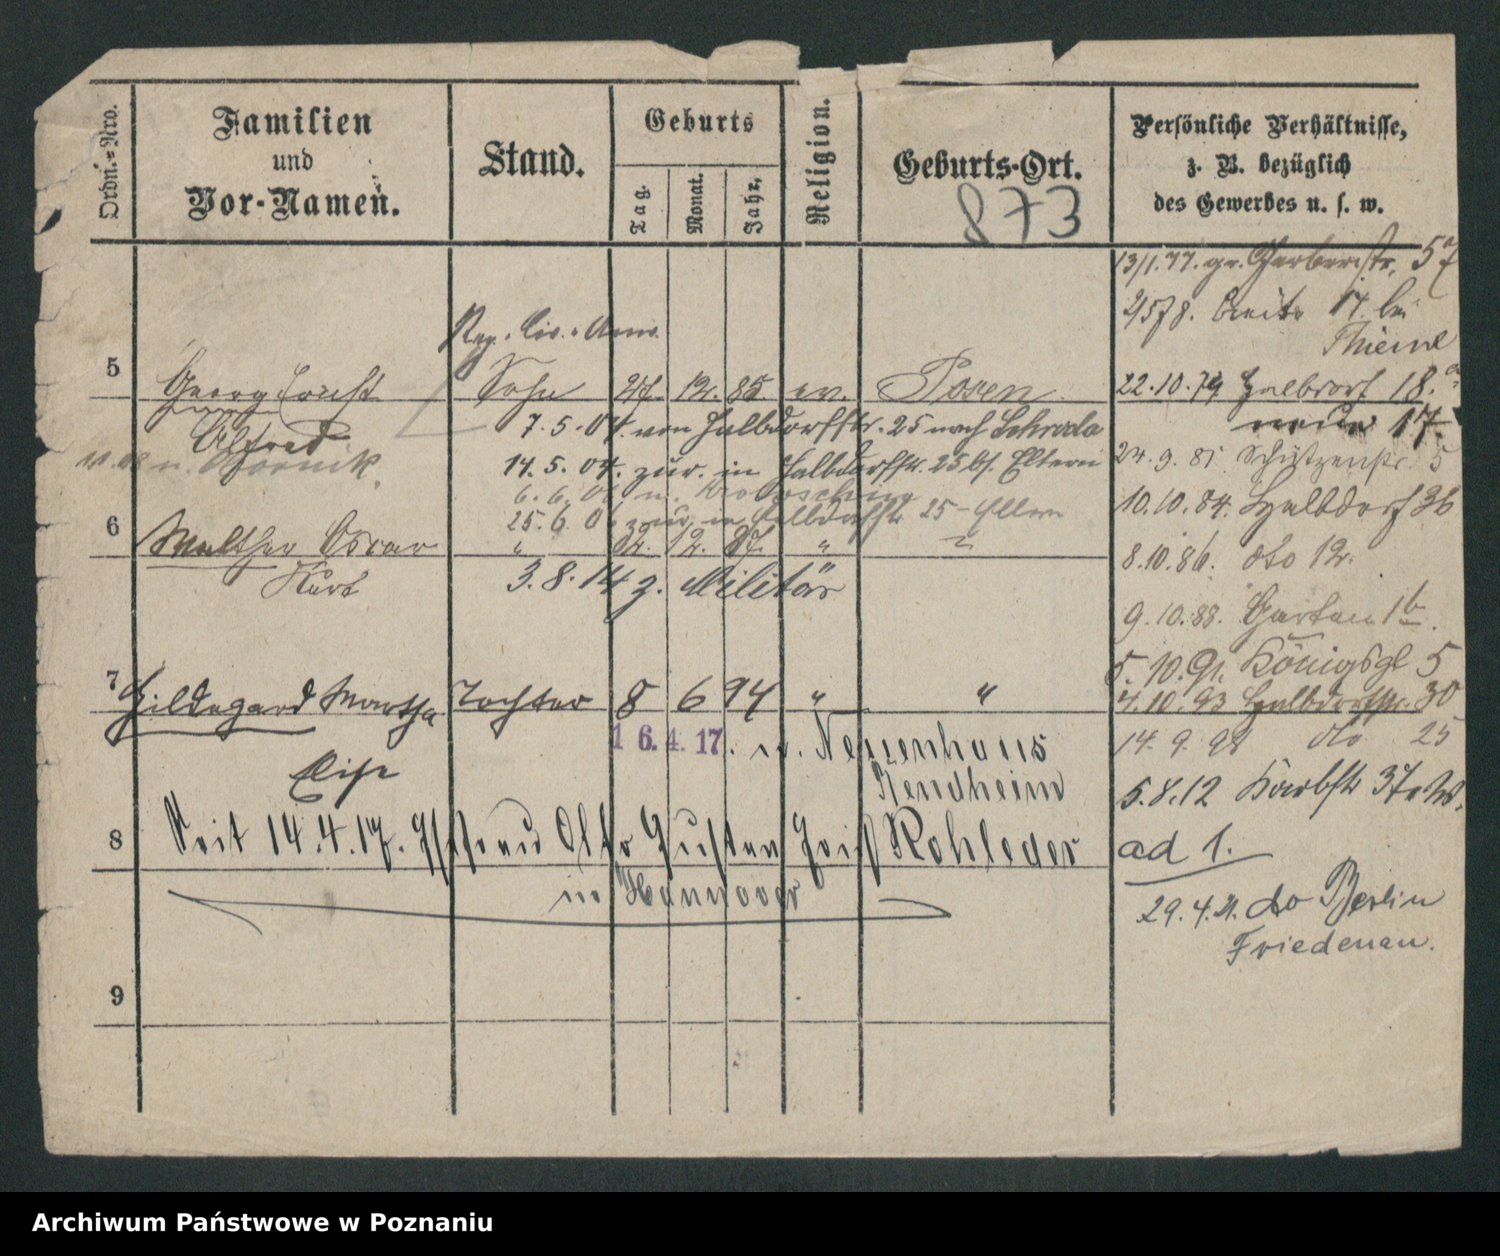 Ordn.=Nro.
Familien
und
Vor-Namen.
Stand.
Geburts
Tag.
Monat.
Jahr.
Religion.
Geburts-Ort.
873
Persönliche Verhältnisse,
z. B. bezüglich
des Gewerbes u. s. w.
13/1.77. gr. Gerberstr. 57
2/5 78. Breite 17. bei
Thieme
22.10.79 Halbdorf 18.
neue 17.
24.9.81 Schützenstr. 5
10.10.84. Halbdorf 36
8.10.86. dto 12.
9.10.88. Garten 1b.
5.10.91. Königspl 5
4.10.93 Halbdorfstr. 30
14.9.98 dto 25
5.8.12
ad 1.
29.4.21. do Berlin
Friedenau.
5
Georg Ernst
Alfred
Sohn 27. 12. 85 ev. Posen
7.5.04. von Halbdorfstr. 25 nach Schroda
14.5.04. zur. in Halbdorfstr. 25 bf. Eltern
6.6.06 n. Krotoschin
25.6.06 zur. in Halbdorfstr 25 - Eltern
6
Walther Oscar
Kurt
" 12. 87. "
3.8.14 z. Militär
7
Hildegard Martha
Else
Tochter 8 6 94 " "
16.4.17. n. Neuenhaus
8
Seit 14.4.17. Ehefrau Otto Gustav Rohleder
in Hannover
9
Archiwum Państwowe w Poznaniu